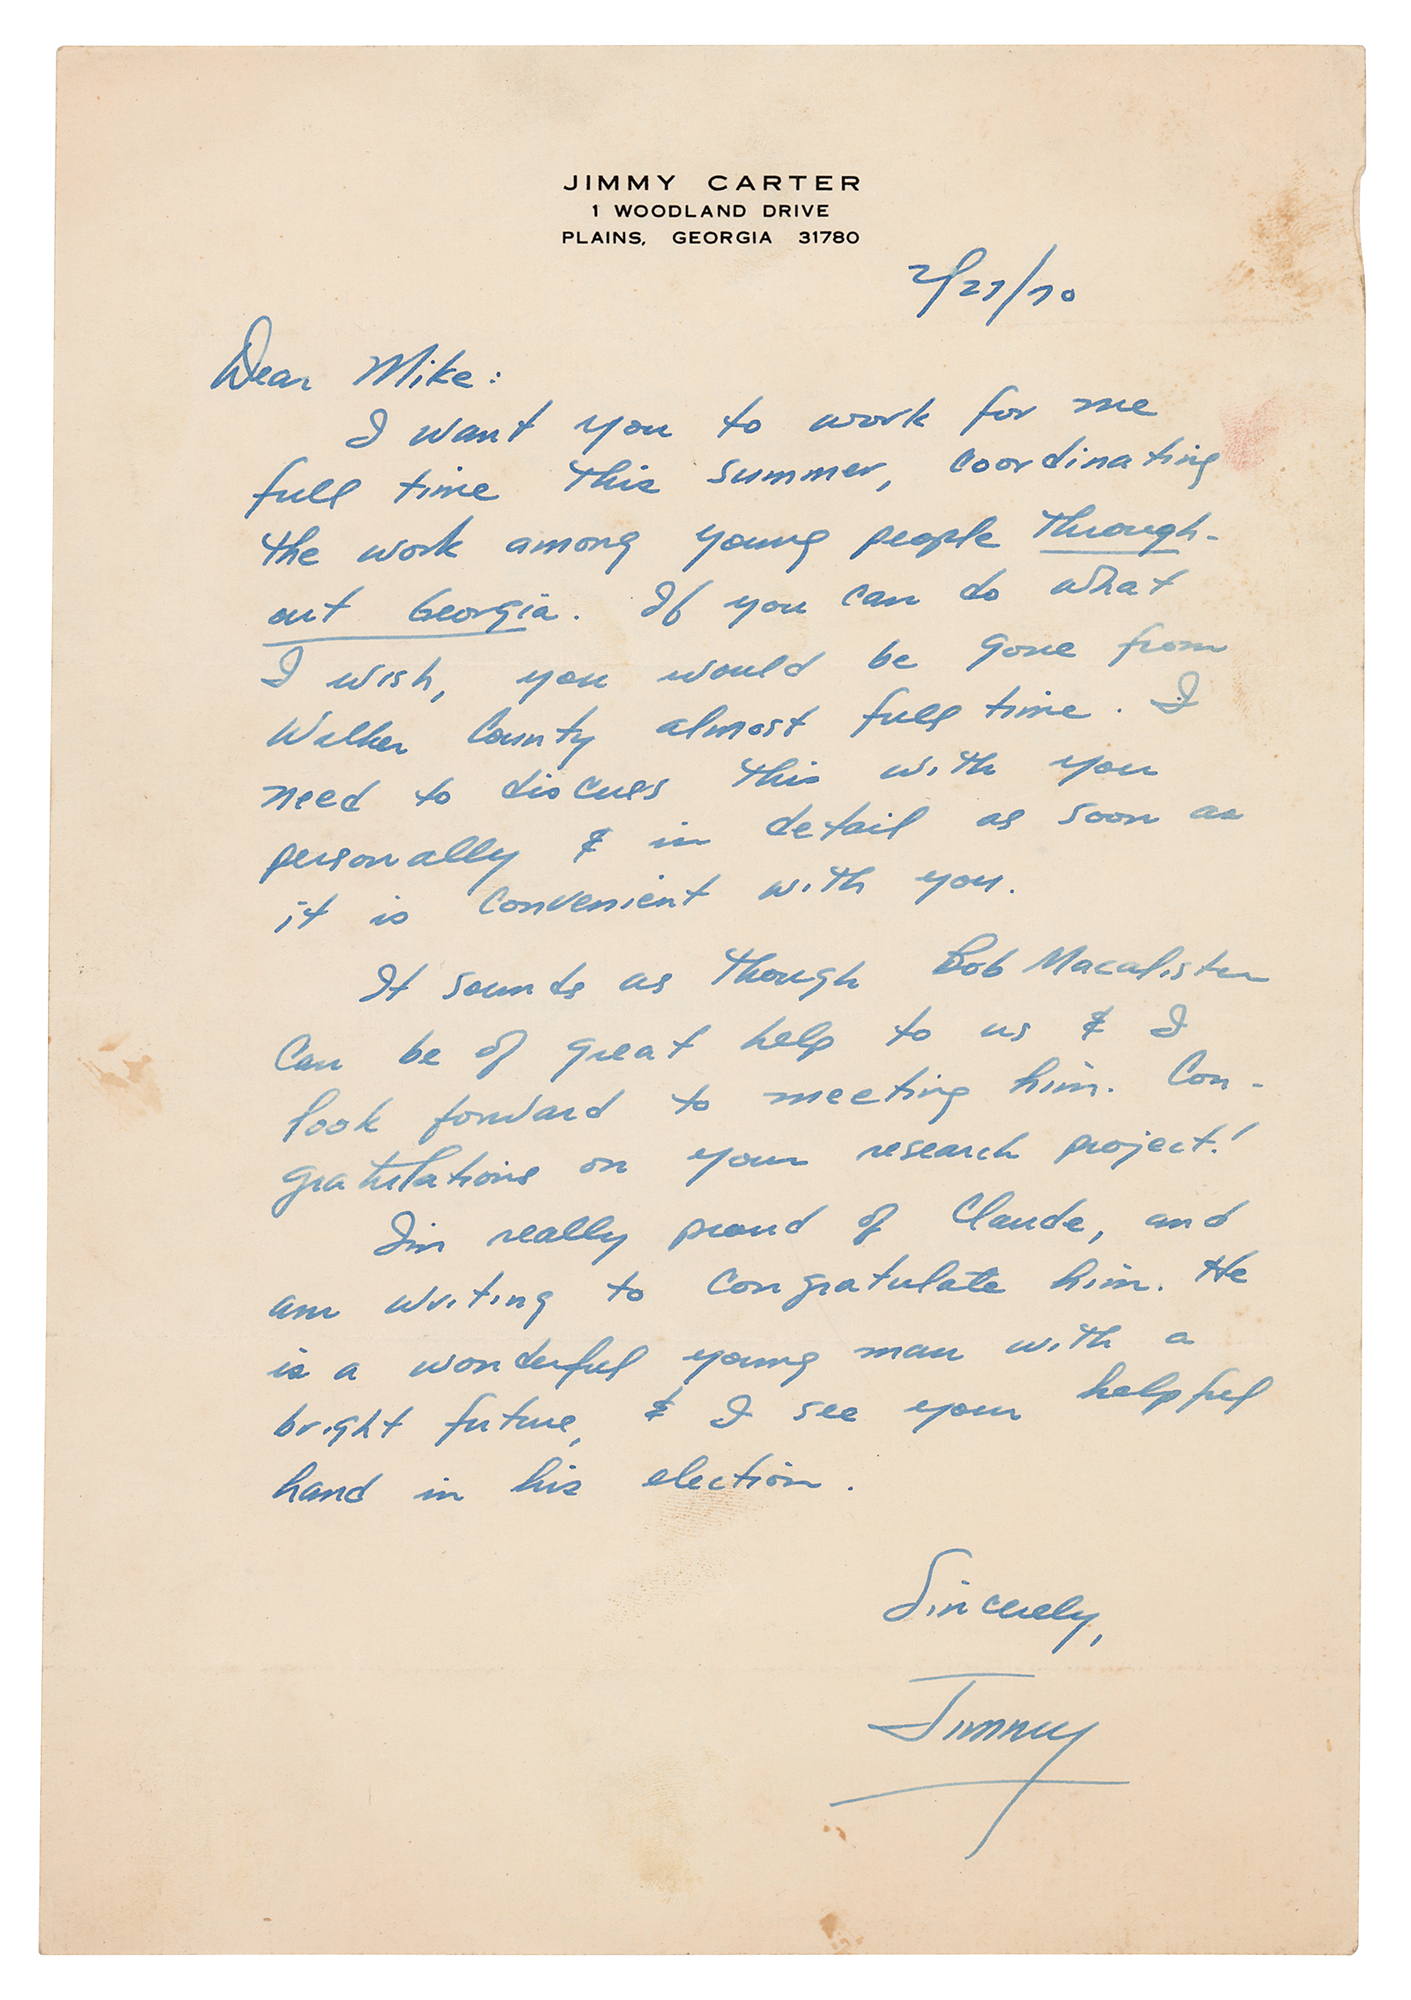 JIMMY CARTER
1 WOODLAND DRIVE
PLAINS, GEORGIA 31780
2/27/70
Dear Mike:
I want you to work for me
full time this summer, coordinating
the work among young people through-
out Georgia. If you can do what
I wish, you would be gone from
Walker County almost full time. I
need to discuss this with you
personally & in detail as soon as
it is convenient with you.
It sounds as though Bob Macalister
can be of great help to us & I
look forward to meeting him. Con-
gratulations on your research project!
I'm really proud of Claude, and
am writing to congratulate him. He
is a wonderful young man with a
bright future, & I see your helpful
hand in his election.
Sincerely,
Jimmy